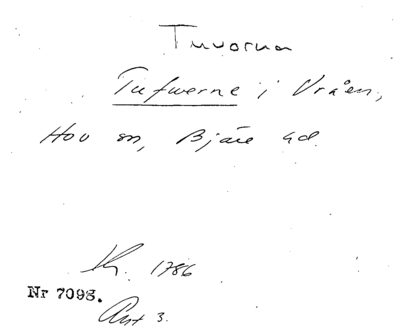 Tuvorna
Tufwerne i Vråen,
Hov sn, Bjäre hd.
1786
Nr 7098.
Akt 3.